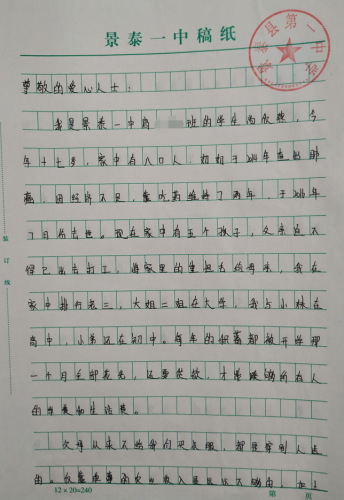 景泰一中稿纸
景泰县第一中学
尊敬的爱心人士：
我是景泰一中高 班的学生尚欣然，今
年十七岁，家中有八口人，奶奶于2014年查出肺
癌，因经济不足，靠吃药维持了两年，于2016年
7月份去世。现在家中有五个孩子，父亲迫不
得已出去打工，将家里的重担丢给母亲，我在
家中排行老三，大姐二姐在大学，我与小妹在
高中，小弟还在初中。每年的积蓄都被开学那
一个月全部花光，还要贷款，才能凑够所有人
的学费和生活费。
父母从来不给我们买衣服，都是穿别人送
的。 收入
装订线
12×20=240
第 页